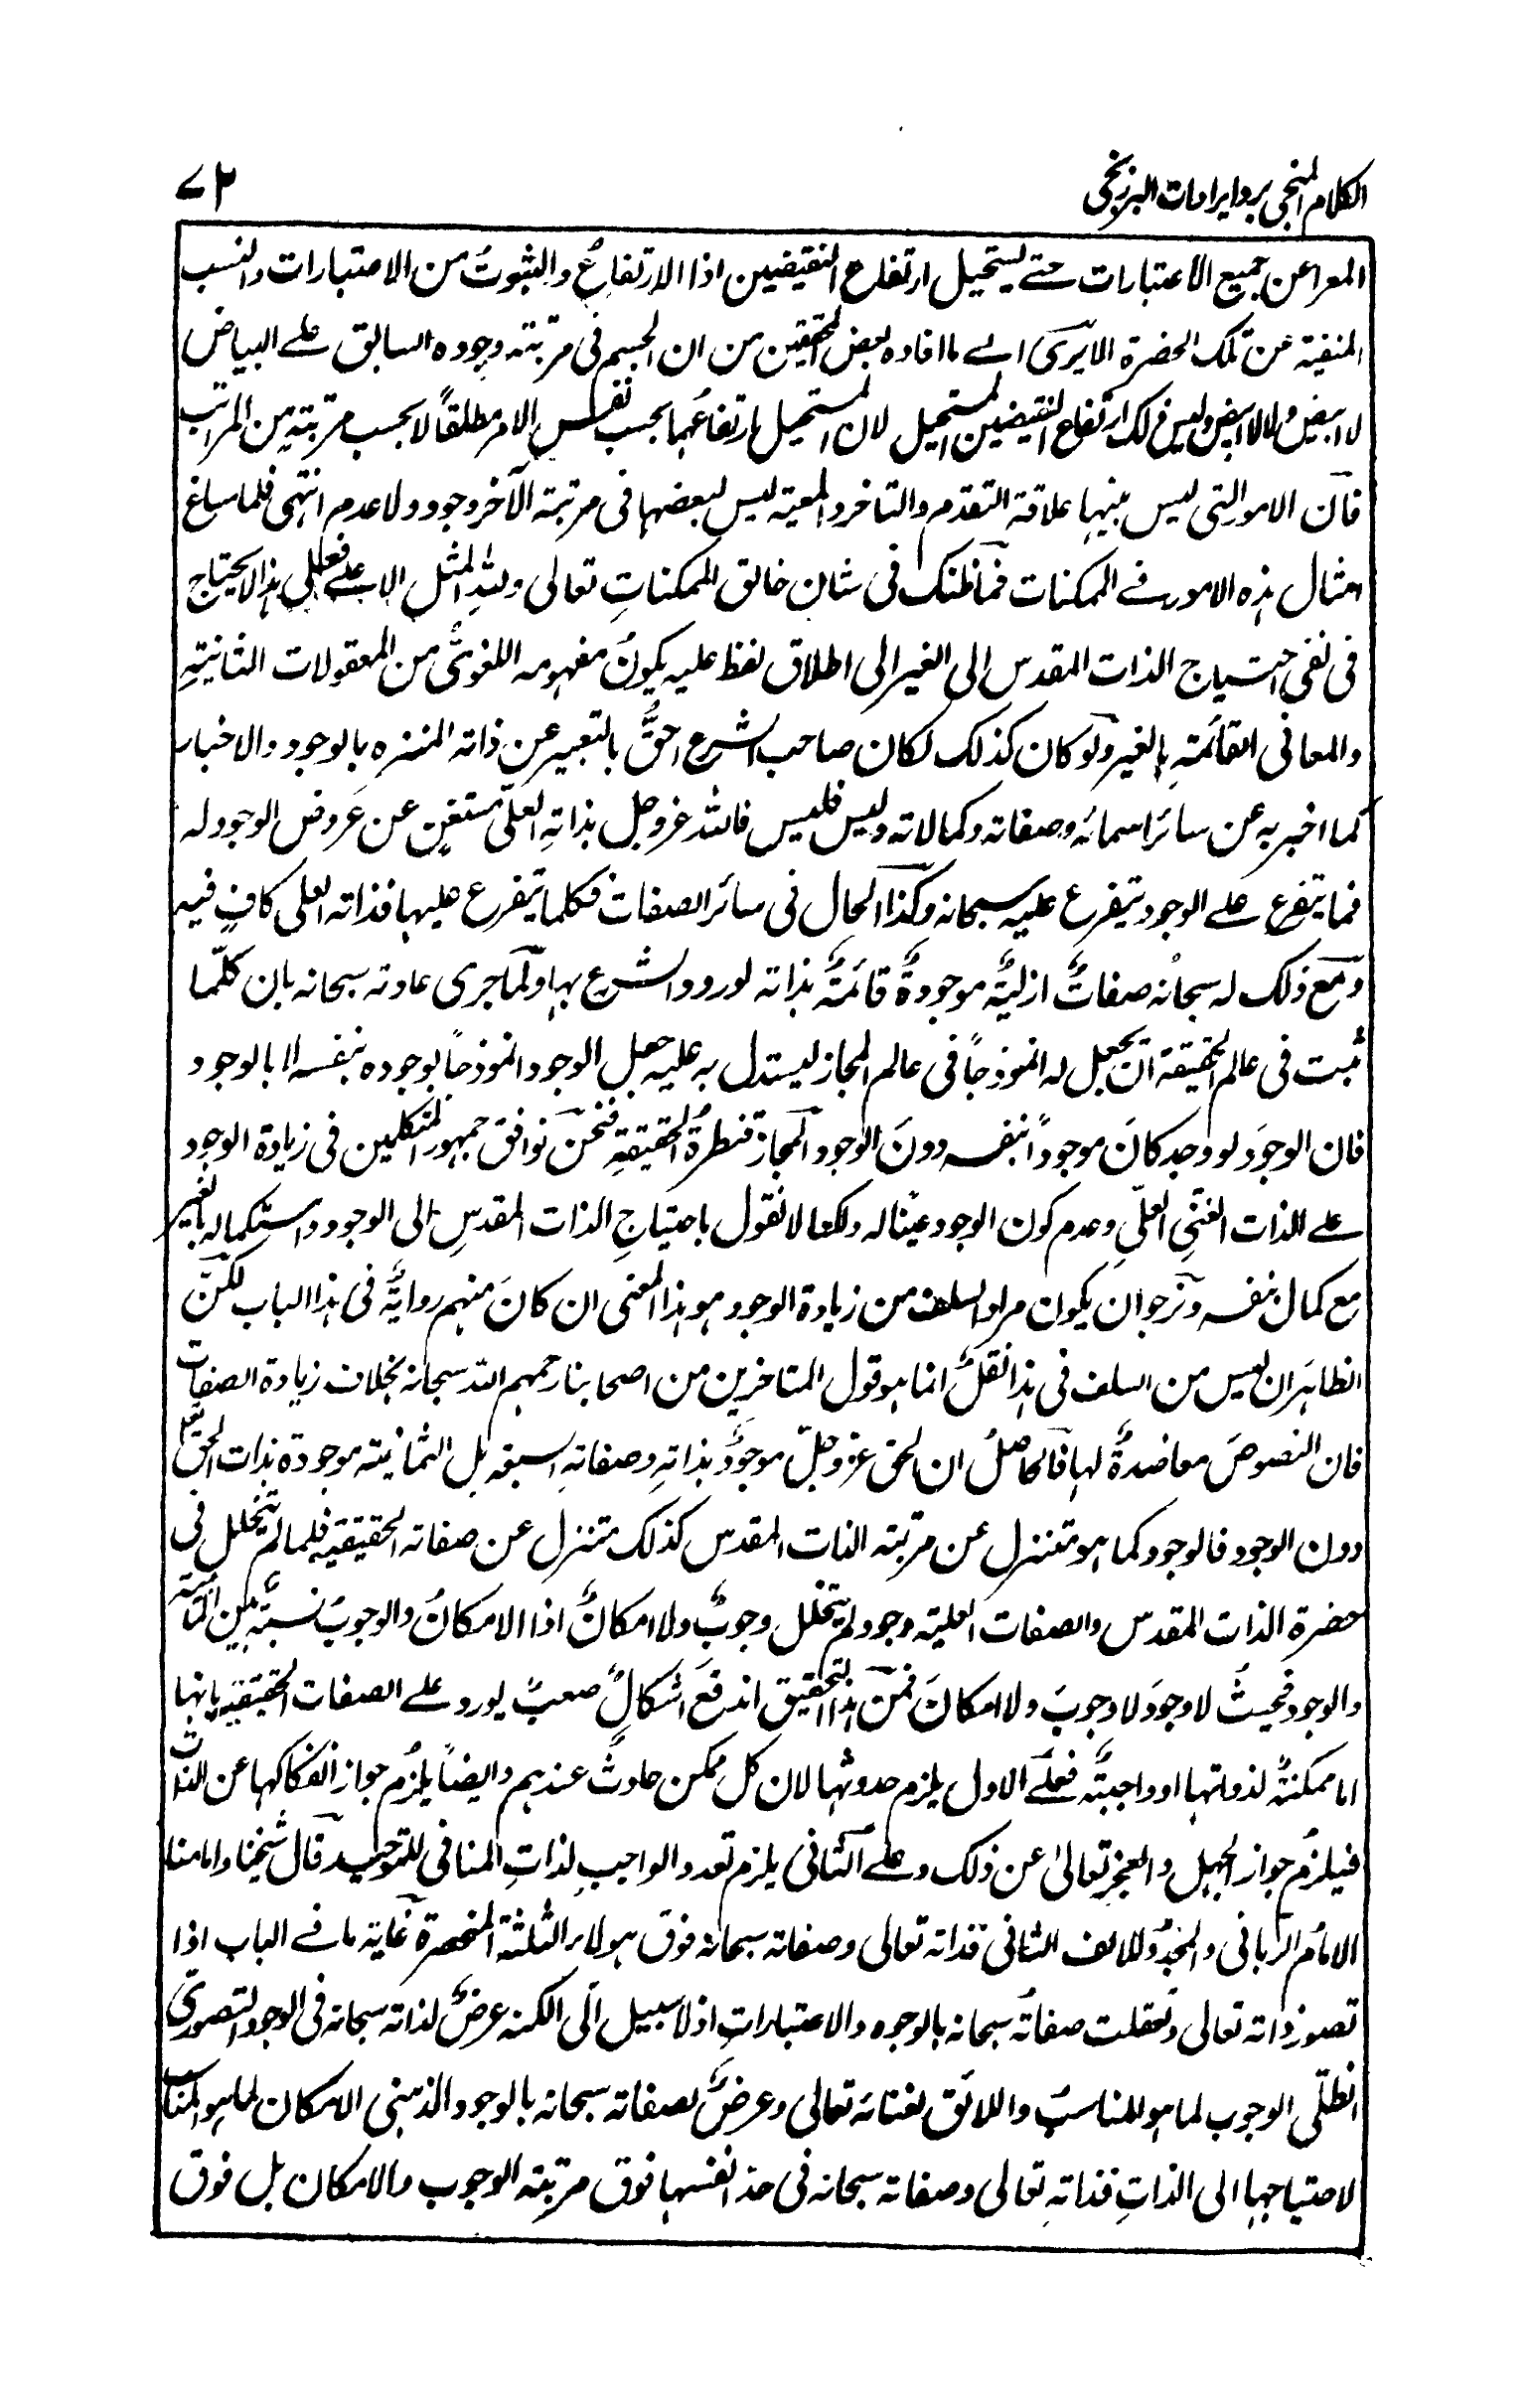 الكلام المنجی برد ایرادات البرزنجی
۷۲
المعرا عن جمیع الاعتبارات حتے یستحیل ارتفاع النقیضین اذا الارتفاعُ والثبوتُ من الاعتبارات والنسب
المنفیة عن تلک الحضرة الا یریٰ الے ما افاده بعض المحققین من ان الجسم فی مرتبة وجوده السابق علے البیاض
لا ابیض ولا لا ابیض ولیس ذلک ارتفاع النقیضین المستحیل لان المستحیل ارتفاعُهما بحسب نفس الامر مطلقاً لا بحسب مرتبةٍ من المراتب
فان الامور التی لیس بینها علاقة التقدم والتاخر والمعیة لیس لبعضها فی مرتبة الآخر وجود ولا عدم انتهی فلما ساغ
امثال هذه الامور فے الممکنات فما ظنک فی شان خالق الممکناتِ تعالی وللّٰهِ المثل الاعلے فعلی هذا لا یحتاج
فی نفی احتیاج الذات المقدس الی الغیر الی اطلاق لفظ علیه یکونُ مفهومه اللغویُّ من المعقولات الثانیةِ
والمعانی القائمةِ بالغیر ولو کان کذلک لکان صاحب الشرع احقُّ بالتعبیر عن ذاته المنزه بالوجود والاخبار
کما اخبر به عن سائر اسمائه وصفاته وکمالاته ولیس فلیس فاللّٰه عز وجل بذاتهِ العلیّ مستغنٍ عن عَروض الوجود له
فما یتفرع علے الوجود یتفرع علیه سبحانه وکذا الحال فی سائر الصفات فکلما یتفرع علیها فذاته العلی کافٍ فیه
ومع ذلک له سبحانه صفاتٌ ازلیةٌ موجودةٌ قائمةٌ بذاته لورود الشرع بها ولما جری عادته سبحانه بان کلّما
ثبت فی عالم الحقیقة ان یجعل له انموذجاً فی عالم المجاز لیستدل به علیه جعل الوجود انموذجاً بوجوده بنفسه لا بالوجود
فان الوجودَ لو وجد کانَ موجوداً بنفسه دونَ الوجود والمجاز قنطرةُ الحقیقةِ فنحن نوافق جمهور المتکلمین فی زیادة الوجود
علے الذات الغنیِّ العلیّ وعدم کون الوجود عیناً له ولکنا لا نقول باحتیاجِ الذات المقدسِ الی الوجود واستکماله بالغیر
مع کمال بنفسه ونرجوان یکون مراد السلف من زیادة الوجود هو هذا المعنی ان کانَ منهم روایةٌ فی هذا الباب لکنّ
الظاهرَ ان لیس من السلف فی هذا نقلٌ انما هو قول المتاخرین من اصحابنا رحمهم اللّٰه سبحانه بخلاف زیادة الصفات
فان النصوصَ معاضدةٌ لها فالحاصلُ ان الحق عز وجلّ موجودٌ بذاتهِ وصفاتهِ السبعه بل الثمانیة موجودة بذات الحق تعلی
دون الوجود فالوجود کما هو متنزل عن مرتبة الذات المقدس کذلک متنزل عن صفاته الحقیقیة فلما لم یتخلل فی
حضرة الذات المقدس والصفات العلیة وجود لم یتخلل وجوبٌ ولا امکانٌ اذا الامکانُ والوجوبُ نسبةٌ بین الماهیة
والوجود فحیثُ لا وجودَ لا وجوبَ ولا امکانَ فمن هذا التحقیق اندفعَ اشکالٌ صعبٌ یورد علے الصفات الحقیقیة بانها
اما ممکنةٌ لذواتها او واجبةٌ فعلے الاول یلزم حدوثها لان کل ممکن حادثٌ عندهم وایضاً یلزم جواز انفکاکها عن الذات
فیلزم جواز الجهل والعجز تعالیٰ عن ذلک وعلے الثانی یلزم تعدد الواجبِ لذاتِ المنافی للتوحید قال شیخنا وامامنا
الامام الربانی والمجدد للالف الثانی فذاته تعالی وصفاته سبحانه فوق هولاء الثلثة المنحصرة غایة ما فے الباب اذا
تصور ذاته تعالی وتعقلت صفاتُه سبحانه بالوجوه والاعتباراتِ اذ لا سبیل الی الکنه عرضٌ لذاته سبحانه فی الوجود التصوری
الظلّی الوجوب لما هو المناسبُ واللائق لغنائه تعالی وعرضٌ لصفاته سبحانه بالوجود الذهنی الامکان لما هو المناسب
لاحتیاجها الی الذاتِ فذاتهِ تعالی وصفاته سبحانه فی حد انفسها فوق مرتبة الوجوب والامکان بل فوق